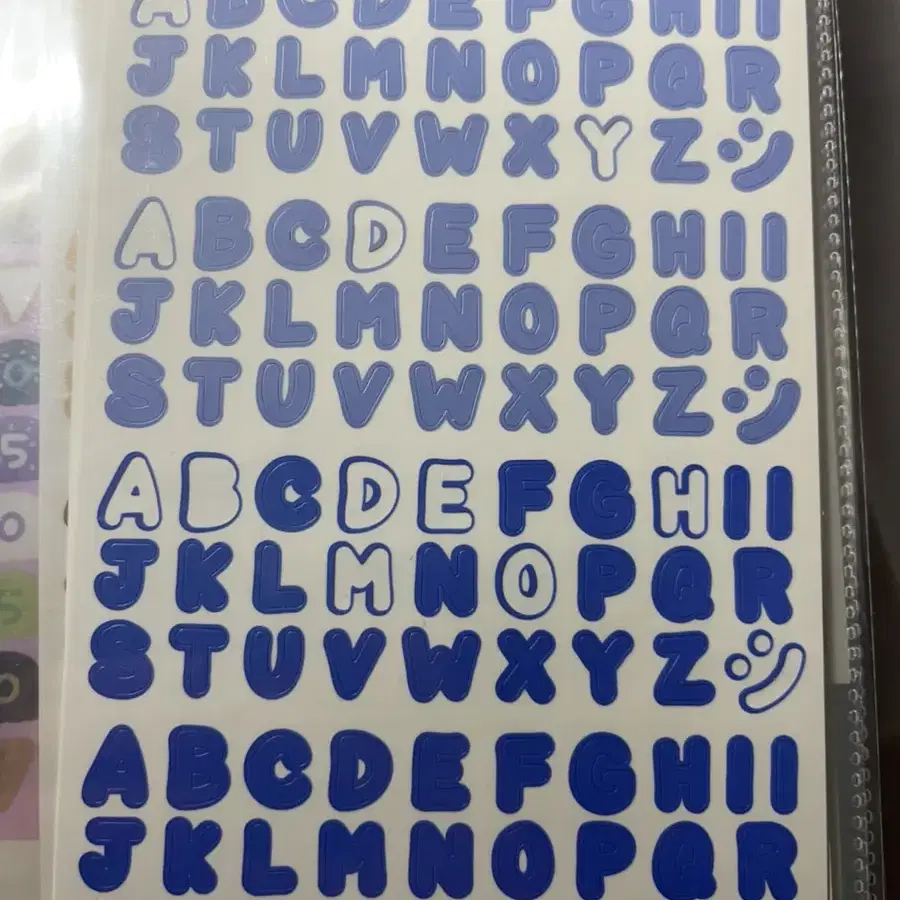 A B C D E F G H I I
J K L M N O P Q R
S T U V W X Y Z
A B C D E F G H I I
J K L M N O P Q R
S T U V W X Y Z
A B C D E F G H I I
J K L M N O P Q R
S T U V W X Y Z
A B C D E F G H I I
J K L M N O P Q R
5
0
5
0